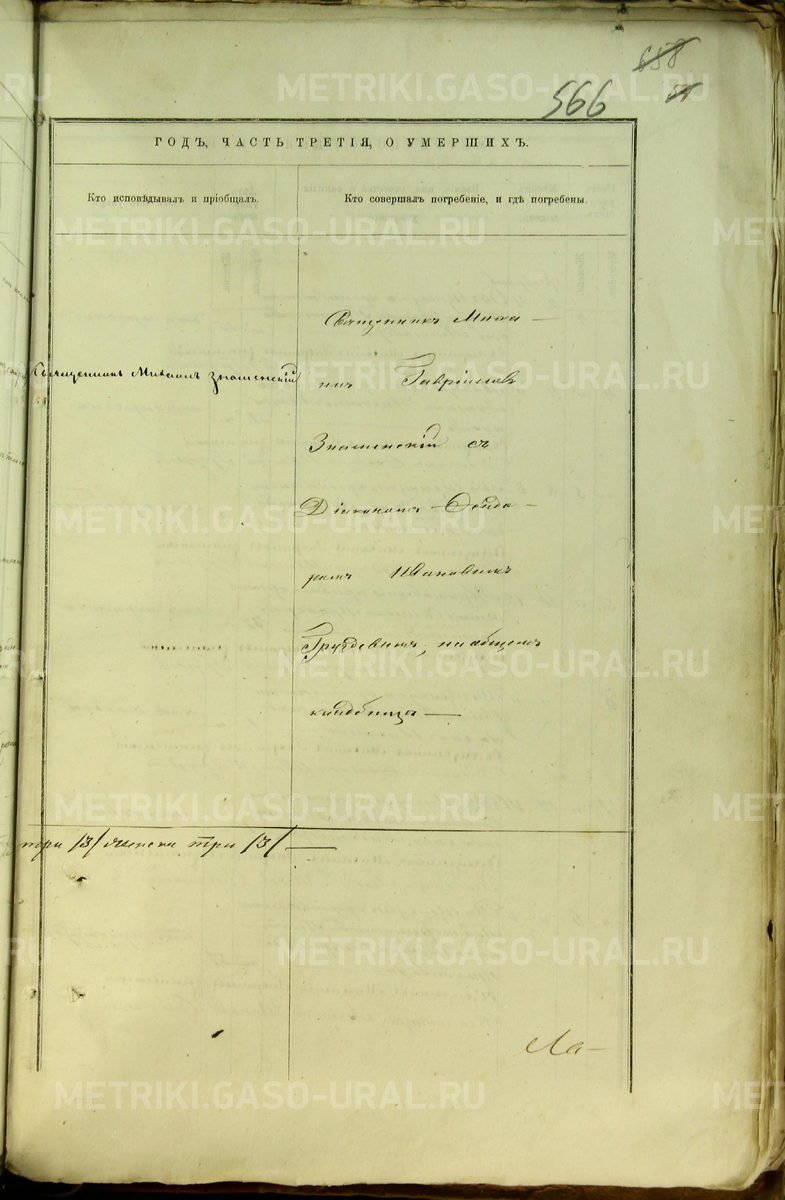 658
566
ГОДЪ, ЧАСТЬ ТРЕТІЯ, О УМЕРШИХЪ.
Кто исповѣдывалъ и пріобщалъ.
Кто совершалъ погребеніе, и гдѣ погребены.
Священникъ Михаилъ Знаменскій
Священникъ Миха–
илъ Гавріиловъ
Знаменскій съ
Діакономъ Ѳеодо–
ромъ Ивановымъ
Груздевымъ, на общемъ
кладбищѣ —
три /3/ женска три /3/ —
Ла–
METRIKI.GASO-URAL.RU